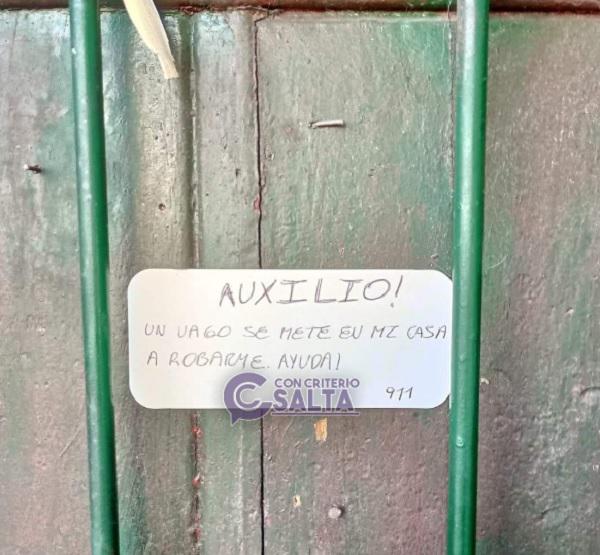 AUXILIO!
UN VAGO SE METE EN MI CASA
A ROBARME. AYUDA!
CON CRITERIO
SALTA
911